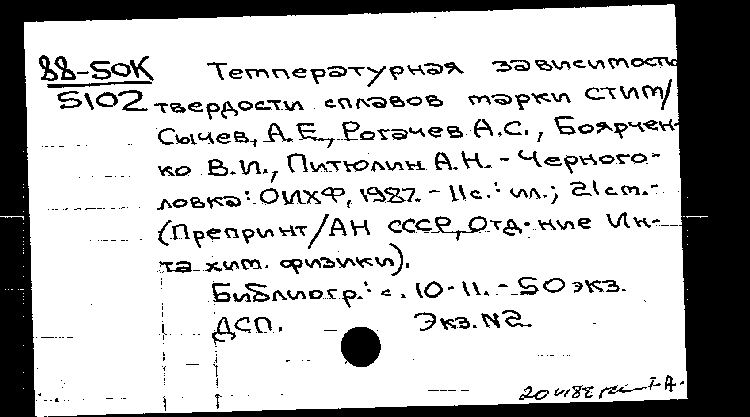 88-50К Температурная зависимость
5102 твердости сплавов марки СТИМ/
Сычев, А.Е., Рогачев А.С., Боярчен-
ко В.И., Питюлин А.Н. - Черного-
ловка: ОИХФ, 1987. - 11с.: ил.; 21см. -
(Препринт/АН СССР, Отд-ние Ин-
та хим. физики).
Библиогр.: с. 10-11. - 50 экз.
ДСП. Экз. №2.